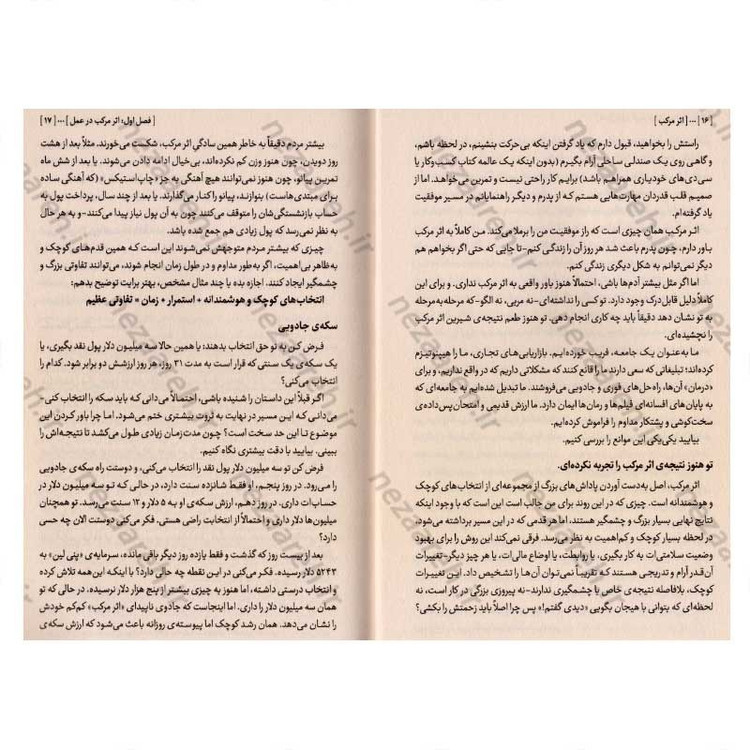 [ ۱۶ ] ... [ اثر مرکب ]
راستش را بخواهید، قبول دارم که یاد گرفتن اینکه بی‌حرکت بنشینم، در لحظه باشم،
و گاهی روی یک صندلی ساحلی آرام بگیرم (بدون اینکه یک عالمه کتاب کسب‌وکار یا
سی‌دی‌های خودیاری همراهم باشد) برایم کار راحتی نیست و تمرین می‌خواهد. اما از
صمیم قلب قدردان مهارت‌هایی هستم که از پدرم و دیگر راهنمایانم در مسیر موفقیت
یاد گرفته‌ام.
اثر مرکب همان چیزی است که راز موفقیت من را برملا می‌کند. من کاملاً به اثر مرکب
باور دارم، چون پدرم باعث شد هر روز آن را زندگی کنم-تا جایی که حتی اگر بخواهم هم
دیگر نمی‌توانم به شکل دیگری زندگی کنم.
اما اگر مثل بیشتر آدم‌ها باشی، احتمالاً هنوز باور واقعی به اثر مرکب نداری. و برای این
کاملاً دلیل قابل‌درک وجود دارد. تو کسی را نداشته‌ای-نه مربی، نه الگو-که مرحله‌به‌مرحله
به تو نشان دهد دقیقاً باید چه کاری انجام دهی. تو هنوز طعم نتیجه‌ی شیرین اثر مرکب
را نچشیده‌ای.
ما به‌عنوان یک جامعه، فریب خورده‌ایم. بازاریابی‌های تجاری، ما را هیپنوتیزم
کرده‌اند؛ تبلیغاتی که سعی دارند ما را قانع کنند که مشکلاتی داریم که در واقع نداریم، و برای
«درمان» آن‌ها، راه‌حل‌های فوری و جادویی می‌فروشند. ما تبدیل شده‌ایم به جامعه‌ای که
به پایان‌های افسانه‌ای فیلم‌ها و رمان‌ها ایمان دارد. ما ارزش قدیمی و امتحان‌پس‌داده‌ی
سخت‌کوشی و پشتکار مداوم را فراموش کرده‌ایم.
بیایید یکی‌یکی این موانع را بررسی کنیم.
تو هنوز نتیجه‌ی اثر مرکب را تجربه نکرده‌ای.
اثر مرکب، اصل به‌دست آوردن پاداش‌های بزرگ از مجموعه‌ای از انتخاب‌های کوچک
و هوشمندانه است. چیزی که در این روند برای من جالب است این است که با وجود اینکه
نتایج نهایی بسیار بزرگ و چشمگیر هستند، اما هر قدمی که در این مسیر برداشته می‌شود،
در لحظه بسیار کوچک و کم‌اهمیت به نظر می‌رسد. فرقی نمی‌کند این روش را برای بهبود
وضعیت سلامتی‌ات به کار بگیری، یا روابطت، یا اوضاع مالی‌ات، یا هر چیز دیگر-تغییرات
آن‌قدر آرام و تدریجی هستند که تقریباً نمی‌توان آن‌ها را تشخیص داد. این تغییرات
کوچک، بلافاصله نتیجه‌ی خاص یا چشمگیری ندارند-نه پیروزی بزرگی در کار است، نه
لحظه‌ای که بتوانی با هیجان بگویی «دیدی گفتم!» پس چرا اصلاً باید زحمتش را بکشی؟
[ فصل اول: اثر مرکب در عمل ] ... [ ۱۷ ]
بیشتر مردم دقیقاً به خاطر همین سادگی اثر مرکب، شکست می‌خورند. مثلاً بعد از هشت
روز دویدن، چون هنوز وزن کم نکرده‌اند، بی‌خیال ادامه دادن می‌شوند. یا بعد از شش ماه
تمرین پیانو، چون هنوز نمی‌توانند هیچ آهنگی به جز «چاپ‌استیکس» (که آهنگی ساده
برای مبتدی‌هاست) بنوازند، پیانو را کنار می‌گذارند. یا بعد از چند سال، پرداخت پول به
حساب بازنشستگی‌شان را متوقف می‌کنند چون به آن پول نیاز پیدا می‌کنند-و به هر حال
به نظر نمی‌رسد که پول زیادی هم جمع شده باشد.
چیزی که بیشتر مردم متوجهش نمی‌شوند این است که همین قدم‌های کوچک و
به‌ظاهر بی‌اهمیت، اگر به‌طور مداوم و در طول زمان انجام شوند، می‌توانند تفاوتی بزرگ و
چشمگیر ایجاد کنند. اجازه بده با چند مثال مشخص، بهتر برایت توضیح بدهم:
انتخاب‌های کوچک و هوشمندانه + استمرار + زمان = تفاوتی عظیم
سکه‌ی جادویی
فرض کن به تو حق انتخاب بدهند: یا همین حالا سه میلیون دلار پول نقد بگیری، یا
یک سکه‌ی یک سنتی که قرار است به مدت ۳۱ روز، هر روز ارزشش دو برابر شود. کدام را
انتخاب می‌کنی؟
اگر قبلاً این داستان را شنیده باشی، احتمالاً می‌دانی که باید سکه را انتخاب کنی-
می‌دانی که این مسیر در نهایت به ثروت بیشتری ختم می‌شود. اما چرا باور کردن این
موضوع تا این حد سخت است؟ چون مدت‌زمان زیادی طول می‌کشد تا نتیجه‌اش را
ببینی. بیایید با دقت بیشتری نگاه کنیم.
فرض کن تو سه میلیون دلار پول نقد را انتخاب می‌کنی، و دوستت راه سکه‌ی جادویی
را می‌رود. در روز پنجم، او فقط شانزده سنت دارد، در حالی که تو سه میلیون دلار در
حساب‌ات داری. در روز دهم، ارزش سکه‌ی او به ۵ دلار و ۱۲ سنت می‌رسد. تو همچنان
میلیون‌ها دلار داری و احتمالاً از انتخابت راضی هستی. فکر می‌کنی دوستت الان چه حسی
دارد؟
بعد از بیست روز که گذشت و فقط یازده روز دیگر باقی مانده، سرمایه‌ی «پنی لین» به
۵۲۴۳ دلار رسیده. فکر می‌کنی در این نقطه چه حالی دارد؟ با اینکه این‌همه تلاش کرده
و انتخاب درستی داشته، اما هنوز به چیزی بیشتر از پنج هزار دلار نرسیده. در حالی که تو
همان سه میلیون دلار را داری. اما اینجاست که جادوی ناپیدای «اثر مرکب» کم‌کم خودش
را نشان می‌دهد. همان رشد کوچک اما پیوسته‌ی روزانه باعث می‌شود که ارزش سکه‌ی
nezareh.ir